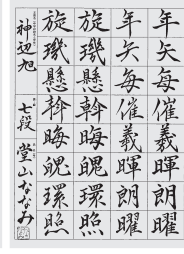 年矢毎催羲暉朗曜
年矢毎催羲暉朗曜
旋璣懸斡晦魄環照
旋璣懸斡晦魄環照
神辺旭 七段 堂山ななみ